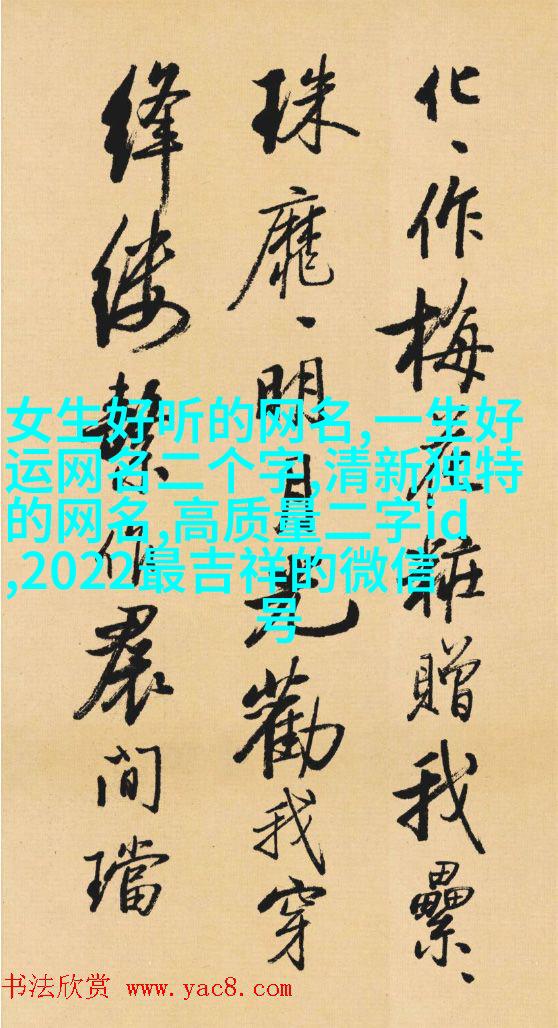 化、作梅花粧贈我纍、
珠靡、明月光勸我穿
絳縷繫作裠間璫
女生好听的网名,一生好
运网名二个字,清新独特
的网名,高质量二字id
,2022最吉祥的微信
号
书法欣赏 www.yac8.com